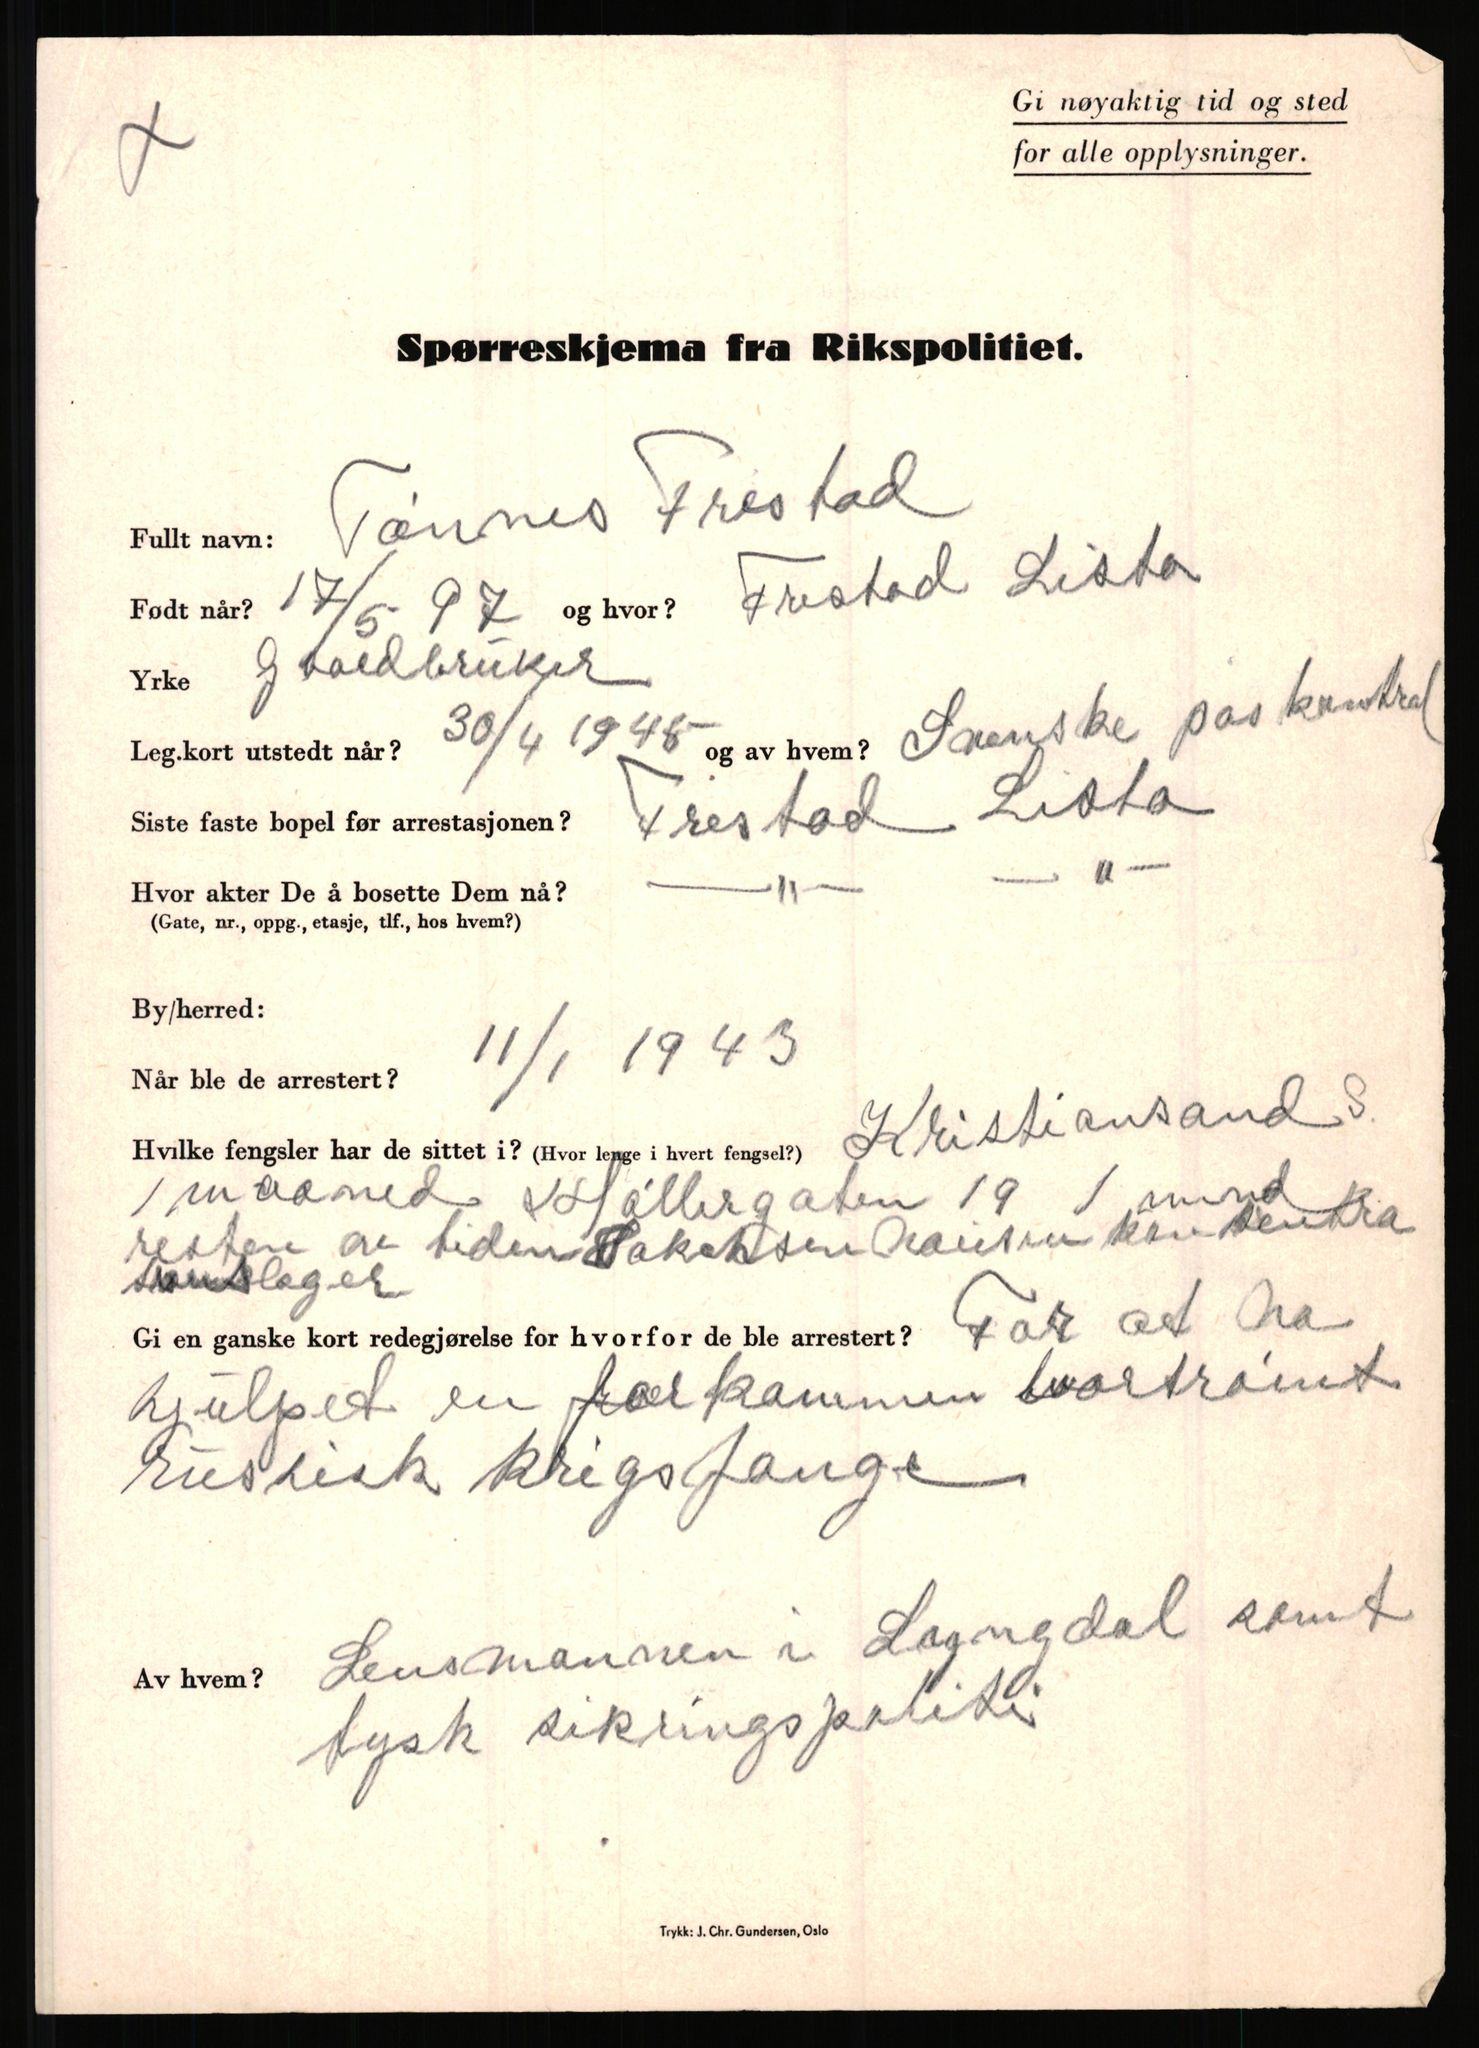 Gi nøyaktig tid og sted
for alle opplysninger.
Spørreskjema fra Rikspolitiet.
Fullt navn: Tønnes Frestad
Født når? 17/5 97 og hvor? Frestad Lista
Yrke Gaardbruker
Leg.kort utstedt når? 30/4 1945 og av hvem? Svenske paskontrol
Siste faste bopel før arrestasjonen? Frestad Lista
Hvor akter De å bosette Dem nå? —"— —"—
(Gate, nr., oppg., etasje, tlf., hos hvem?)
By/herred:
Når ble de arrestert? 11/1 1943
Hvilke fengsler har de sittet i? (Hvor lenge i hvert fengsel?) Kristiansand S.
1 maaned Møllergaten 19 1 mnd
resten av tiden Saksenhausen konsentra
sonslager
Gi en ganske kort redegjørelse for hvorfor de ble arrestert? For at ha
hjulpet en forkommen bortrømt
russisk krigsfange
Av hvem? Lensmannen i Lyngdal samt
tysk sikringspoliti
Trykk: J. Chr. Gundersen, Oslo